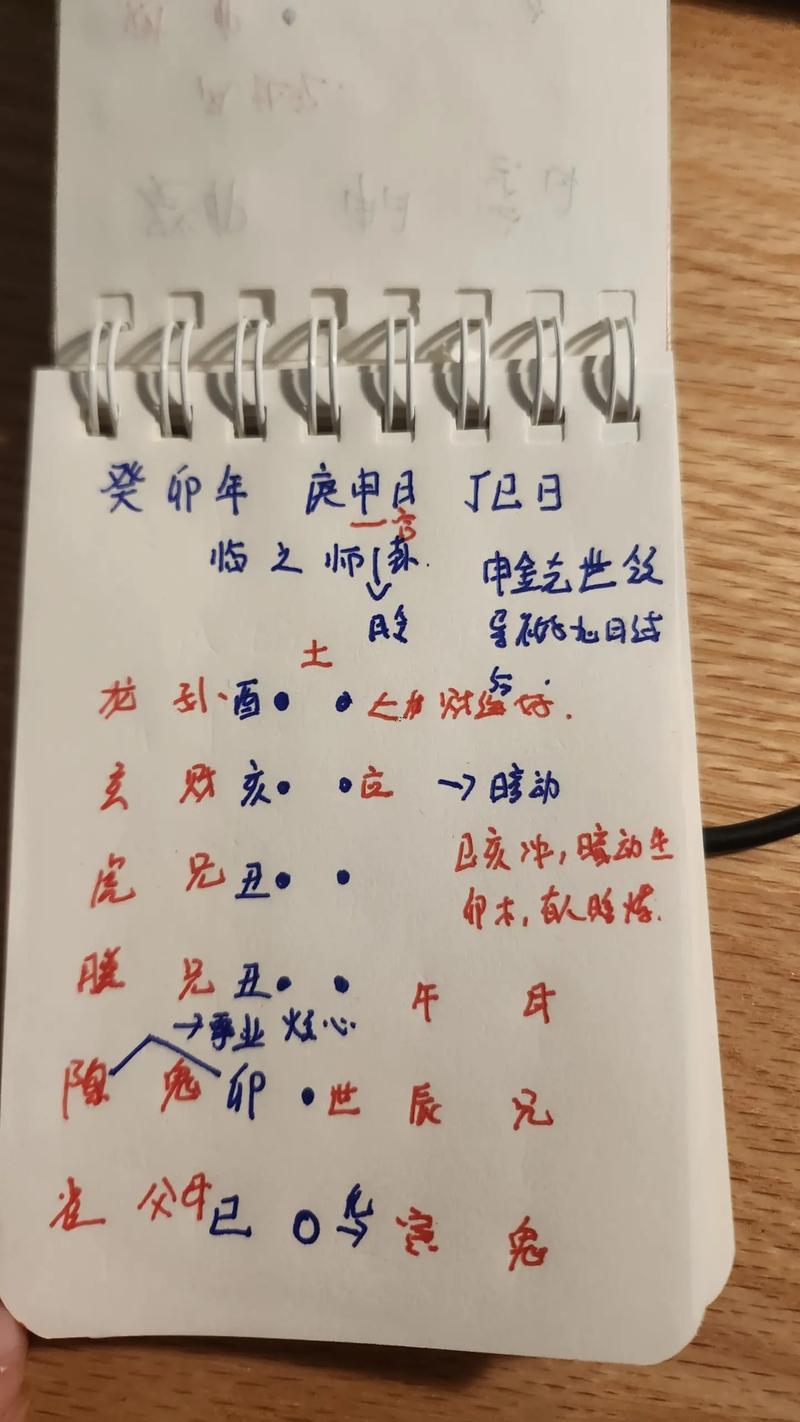 癸卯年 庚申日 丁巳日
一官
临之师卦.
申金克世爻
土
龙 酉 财 好.
玄 财 亥 应 → 暗动
巳亥冲,暗动生
虎 兄 丑
卯木,有人
螣 兄 丑 午 母
→ 事业 心
陈 鬼 卯 世 辰 兄
雀 父母 巳 化→ 寅 鬼